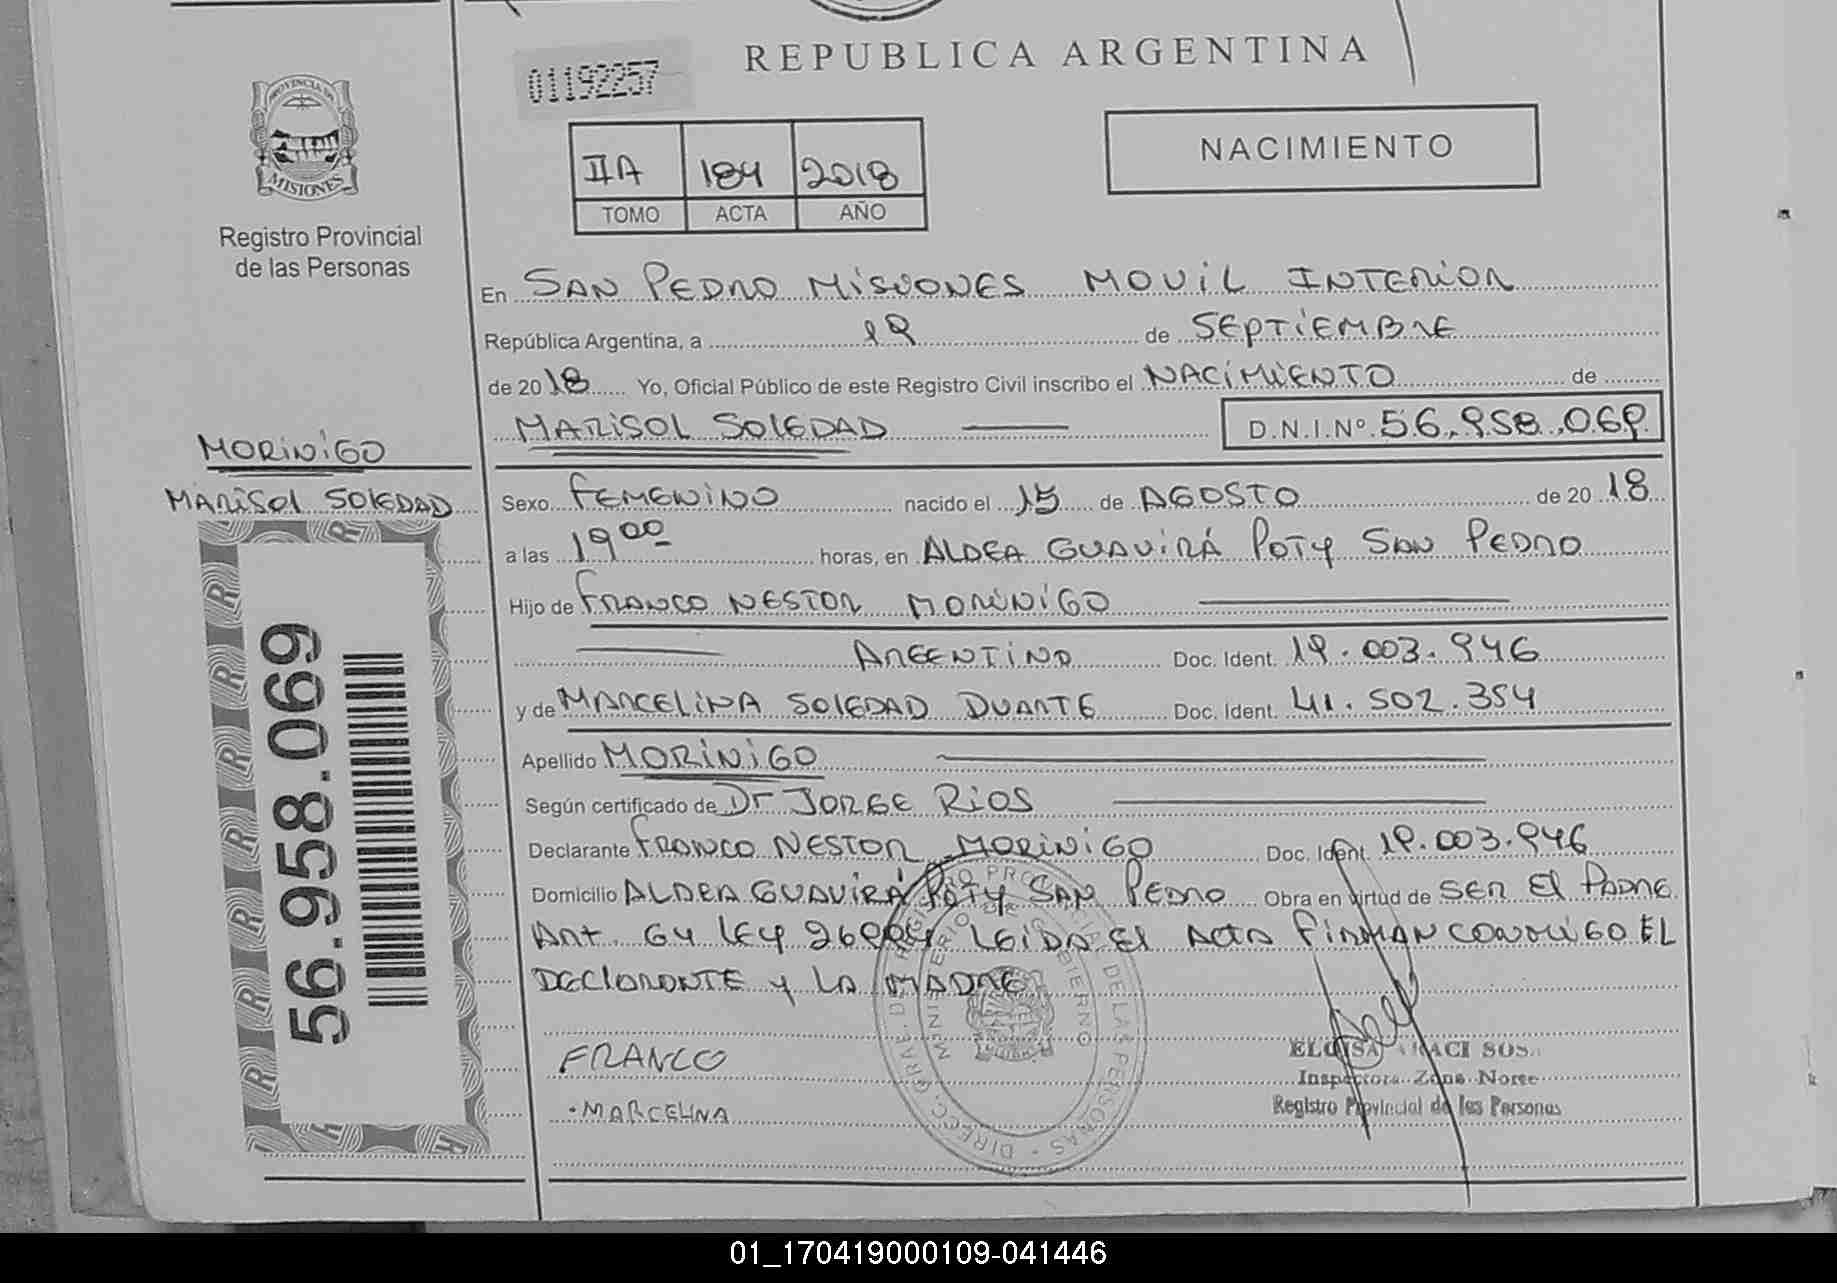 REPUBLICA ARGENTINA
01192257
PROVINCIA DE
MISIONES
Registro Provincial
de las Personas
IIA 184 2018
TOMO ACTA AÑO
NACIMIENTO
En SAN PEDRO MISIONES MOVIL INTERIOR
República Argentina, a 19 de SEPTIEMBRE
de 2018 Yo, Oficial Público de este Registro Civil inscribo el NACIMIENTO de
MARISOL SOLEDAD D.N.I.Nº 56.958.069
MORINIGO
MARISOL SOLEDAD
56.958.069
Sexo FEMENINO nacido el 15 de AGOSTO de 2018
a las 19 00 horas, en ALDEA GUAVIRÁ POTY SAN PEDRO
Hijo de FRANCO NESTOR MORINIGO
ARGENTINO Doc. Ident. 19.003.946
y de MARCELINA SOLEDAD DUARTE Doc. Ident. 41.502.354
Apellido MORINIGO
Según certificado de Dr JORGE RIOS
Declarante FRANCO NESTOR MORINIGO Doc. Ident. 19.003.946
Domicilio ALDEA GUAVIRÁ POTY SAN PEDRO Obra en virtud de SER El PADRE
Art. 64 LEY LEIDA El ACTA FIRMAN CONMIGO EL
DECLARANTE y LA MADRE
FRANCO
MARCELINA
DIREC. GRAL. DEL REGISTRO PROVINCIAL DE LAS PERSONAS
MINISTERIO DE GOBIERNO
ELOISA ARACI SOSA
Inspectora Zona Norte
Registro Provincial de las Personas
01_170419000109-041446